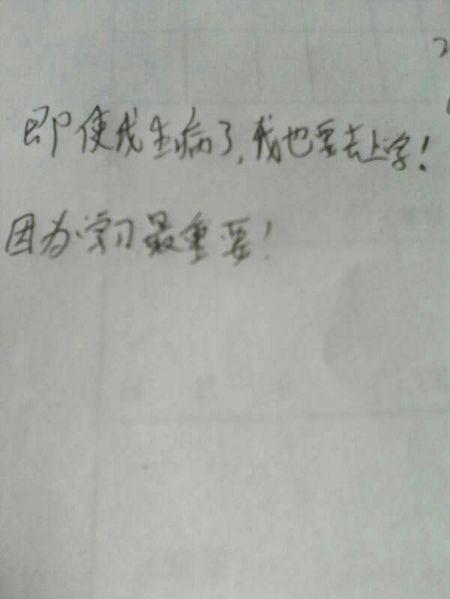 即使我生病了，我也要去上学！
因为学习最重要！